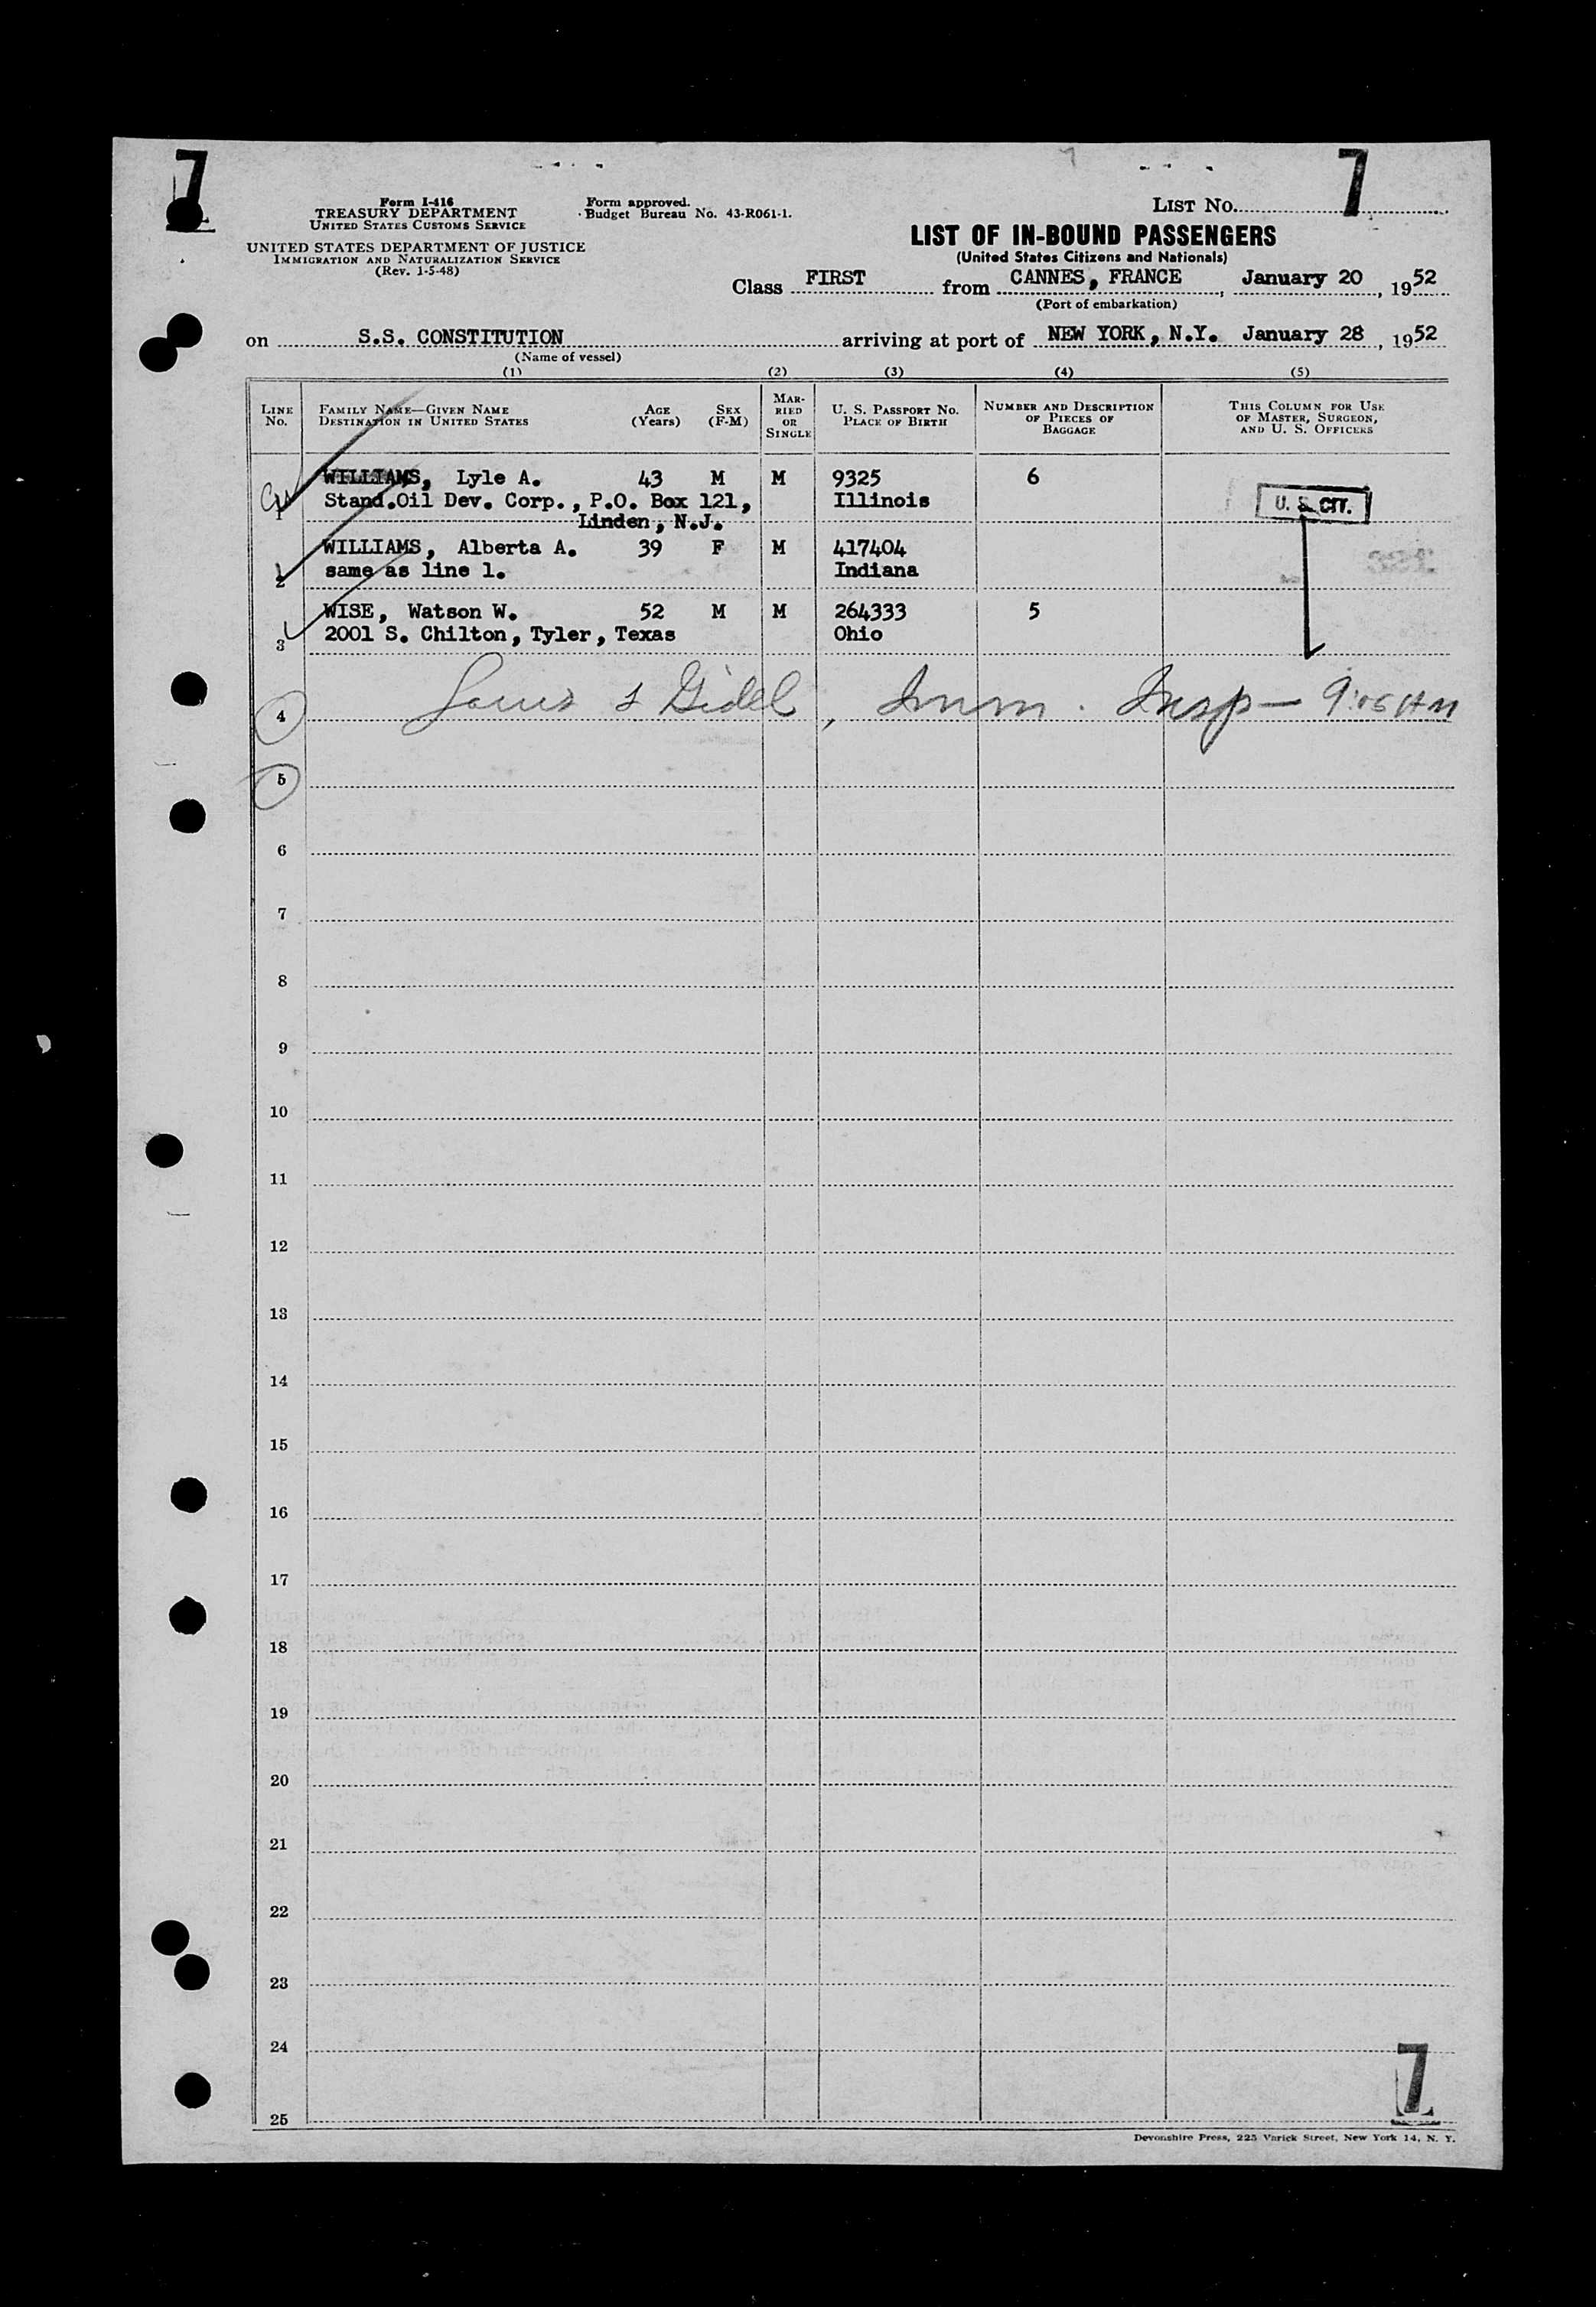 7
7
Form I-416
TREASURY DEPARTMENT
UNITED STATES CUSTOMS SERVICE
UNITED STATES DEPARTMENT OF JUSTICE
IMMIGRATION AND NATURALIZATION SERVICE
(Rev. 1-5-48)
Form approved.
Budget Bureau No. 43-R061-1.
LIST No.
LIST OF IN-BOUND PASSENGERS
(United States Citizens and Nationals)
Class FIRST from CANNES, FRANCE, January 20, 1952
(Port of embarkation)
on S.S. CONSTITUTION arriving at port of NEW YORK, N.Y. January 28, 1952
(Name of vessel)
(1) (2) (3) (4) (5)
LINE No.
FAMILY NAME—GIVEN NAME
DESTINATION IN UNITED STATES
AGE (Years)
SEX (F-M)
MARRIED OR SINGLE
U. S. PASSPORT No.
PLACE OF BIRTH
NUMBER AND DESCRIPTION OF PIECES OF BAGGAGE
THIS COLUMN FOR USE OF MASTER, SURGEON, AND U. S. OFFICERS
1 WILLIAMS, Lyle A. 43 M M 9325 6
Stand.Oil Dev. Corp., P.O. Box 121, Illinois
Linden, N.J.
U. S. CIT.
2 WILLIAMS, Alberta A. 39 F M 417404
same as line 1. Indiana
3 WISE, Watson W. 52 M M 264333 5
2001 S. Chilton, Tyler, Texas Ohio
4 Gidel, Imm. Insp — 9:05 AM
5
6
7
8
9
10
11
12
13
14
15
16
17
18
19
20
21
22
23
24
25
7
Devonshire Press, 225 Varick Street, New York 14, N. Y.